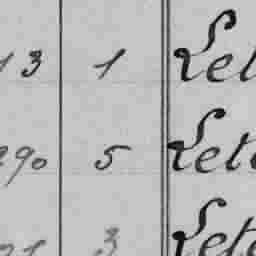 13 1 Let
290 5 Lete
21 3 Lete